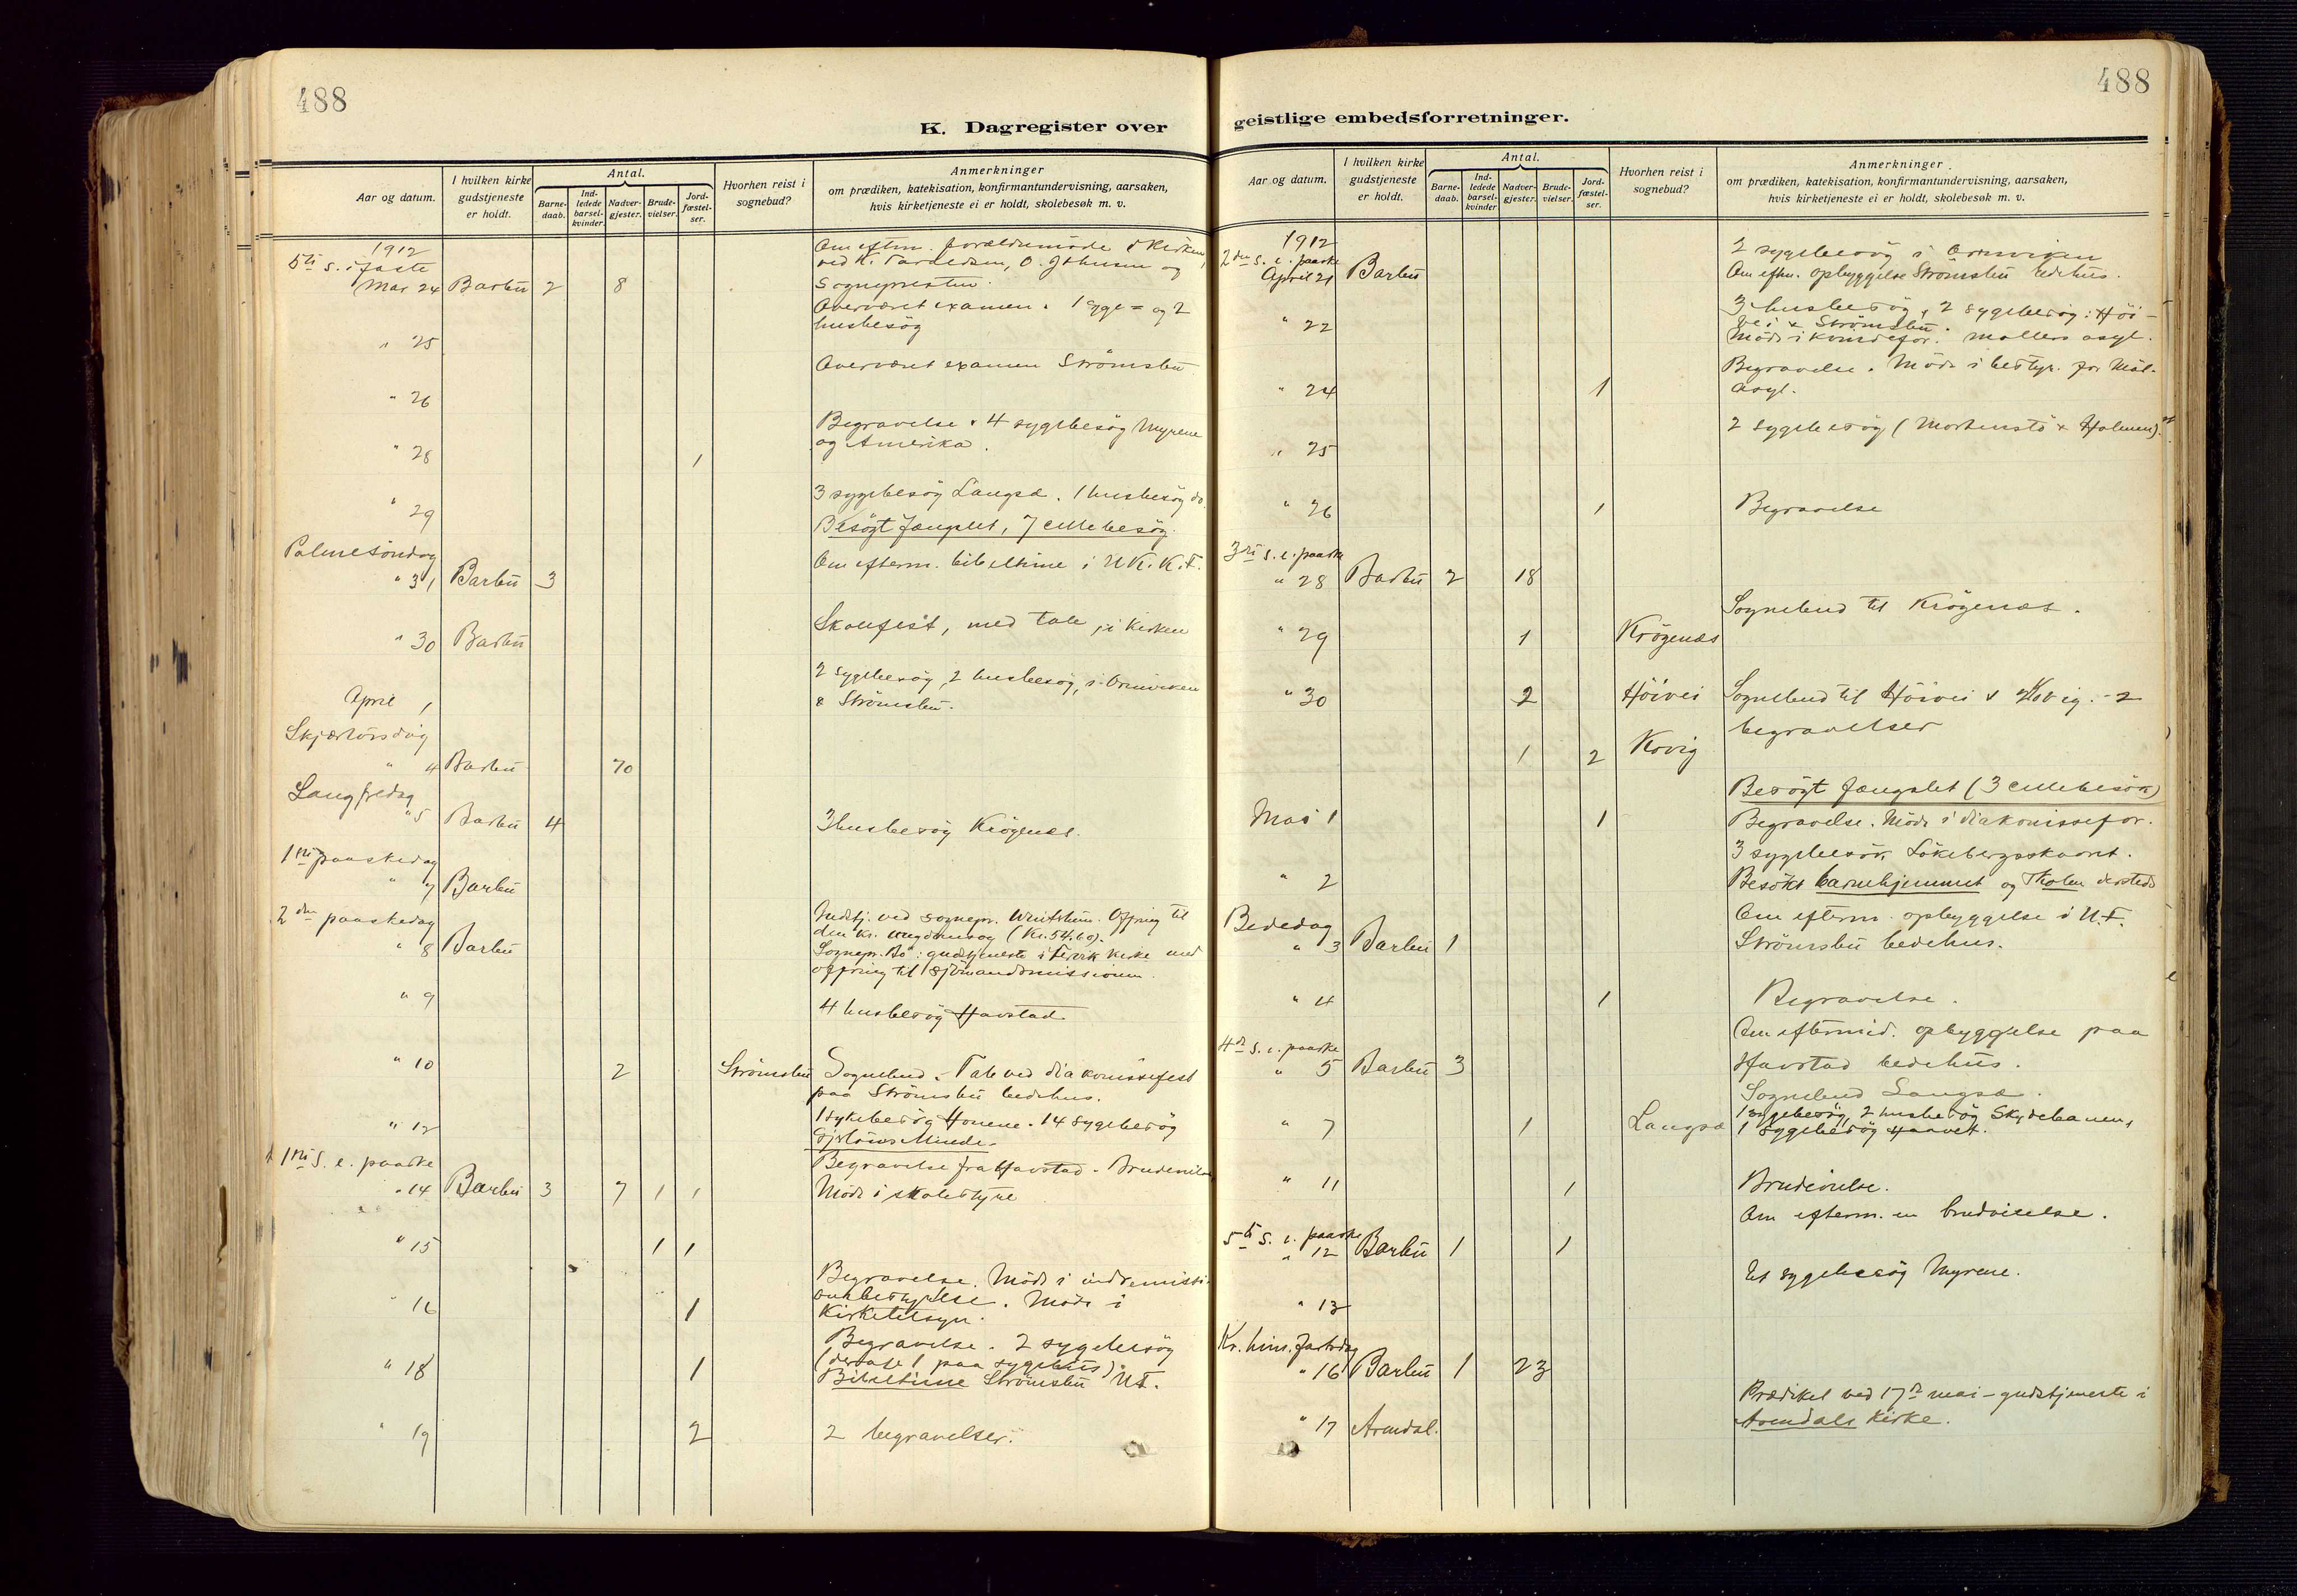 488
K. Dagregister over
Aar og datum.
I hvilken kirke gudstjeneste er holdt.
Antal.
Barne-daab.
Ind-ledede barsel-kvinder
Nadver-gjester.
Brude-vielser.
Jord-fæstel-ser.
Hvorhen reist i sognebud?
Anmerkninger
om prædiken, katekisation, konfirmantundervisning, aarsaken,
hvis kirketjeneste ei er holdt, skolebesøk m. v.
1912
5te S. i faste
Om efterm. forældremöde i Kirken,
ved K. O. Johnsen og
Mar 24 Barbu 2 8 Sognepresten.
Overværet examen. 1 syge= og 2
husbesög
" 25
Overværet examen Strömsbu
" 26
Begravelse. 4 sygebesög Myrene
og Amerika.
" 28 1
3 sygebesög Langsæ. 1 husbesög do.
" 29
Besögt fængslet, 7 cellebesög.
Palmesöndag
Om efterm. bibeltime i U.K.K.F.
" 31 Barbu 3
Skolefest, med tale, i Kirken
" 30 Barbu
2 sygebesög, 2 husbesög, i Ormviken
& Strömsbu.
April 1
Skjærtorsdag
" 4 Barbu 70
Langfredag
" 5 Barbu 4
3 husbesög Krögenæs.
1ste paaskedag
" 7 Barbu
2den paaskedag
Gudstj. ved sognepr. Ofring til
den kr. ungdomssag (Kr. 54,60).
" 8 Barbu
Sognepr. Bö: gudstjeneste i Færvik Kirke med
ofring til sjömandsmissionen.
" 9
4 husbesög Havstad
" 10 2 Strömsbu Sognebud. Tale ved diakonissefest
paa Strömsbu bedehus.
1 sykebesög Honene. 14 sygebesög
" 12
Minde.
1ste S. e. paaske
Begravelse fra Havstad. Brudevielse
" 14 Barbu 3 7 1 1 Möde i skolestyre
" 15 1 1
Begravelse. Möde i indremissi-
onsbestyrelse. Möde i
" 16 1 Kirketilsyn.
Begravelse. 2 sygebesög
" 18 1 (deraf 1 paa sygehus).
Bibeltime Strömsbu U.F.
" 19 2 2 begravelser.
488
geistlige embedsforretninger.
Aar og datum.
I hvilken kirke gudstjeneste er holdt.
Antal.
Barne-daab.
Ind-ledede barsel-kvinder
Nadver-gjester.
Brude-vielser.
Jord-fæstel-ser.
Hvorhen reist i sognebud?
Anmerkninger
om prædiken, katekisation, konfirmantundervisning, aarsaken,
hvis kirketjeneste ei er holdt, skolebesøk m. v.
1912
2den S. e. paaske
2 sygebesög i Ormviken
April 21 Barbu Om eftm. opbyggelse Strömsbu bedehus.
3 husbesög, 2 sygebesög: Höi-
" 22 vei & Strömsbu.
Möde i Kvindefor. Möllers asyl.
Begravelse. Möde i bestyr. for Möl.
" 24 1 asyl.
2 sygebesög (Mortenstö & Holmen).
" 25
" 26 1 Begravelse
3die S. e. paaske
" 28 Barbu 2 18
Sognebud til Krögenæs.
" 29 1 Krögenæs
" 30 2 Höivei Sognebud til Höivei & Kovig. - 2
begravelser
1 2 Kovig
Besögt fængslet (3 cellebesök)
Mai 1 1 Begravelse. Möde i diakonissefor.
3 sygebesök Lökebergsskaaret.
" 2
Besökt barnehjemmet og Tholen dersteds
Bededag
Om efterm. opbyggelse i U.F.
" 3 Barbu 1 Strömsbu bedehus.
" 4 1 Begravelse.
4de S. e. paaske
Om eftermid. opbyggelse paa
" 5 Barbu 3 Havstad bedehus.
Sognebud Langsæ.
" 7 1 Langsæ 1 sygebesög, 2 husbesög Skydebanen,
1 sygebesög Haavet.
" 11 1 Brudevielse.
Om efterm. en brudvielse.
5te S. e. paaske
" 12 Barbu 1 1
Et sygebesög Myrene.
" 13
Kr. him. fartsdag
" 16 Barbu 1 23
Prædiket ved 17de mai-gudstjeneste i
" 17 Arendal. Arendals Kirke.